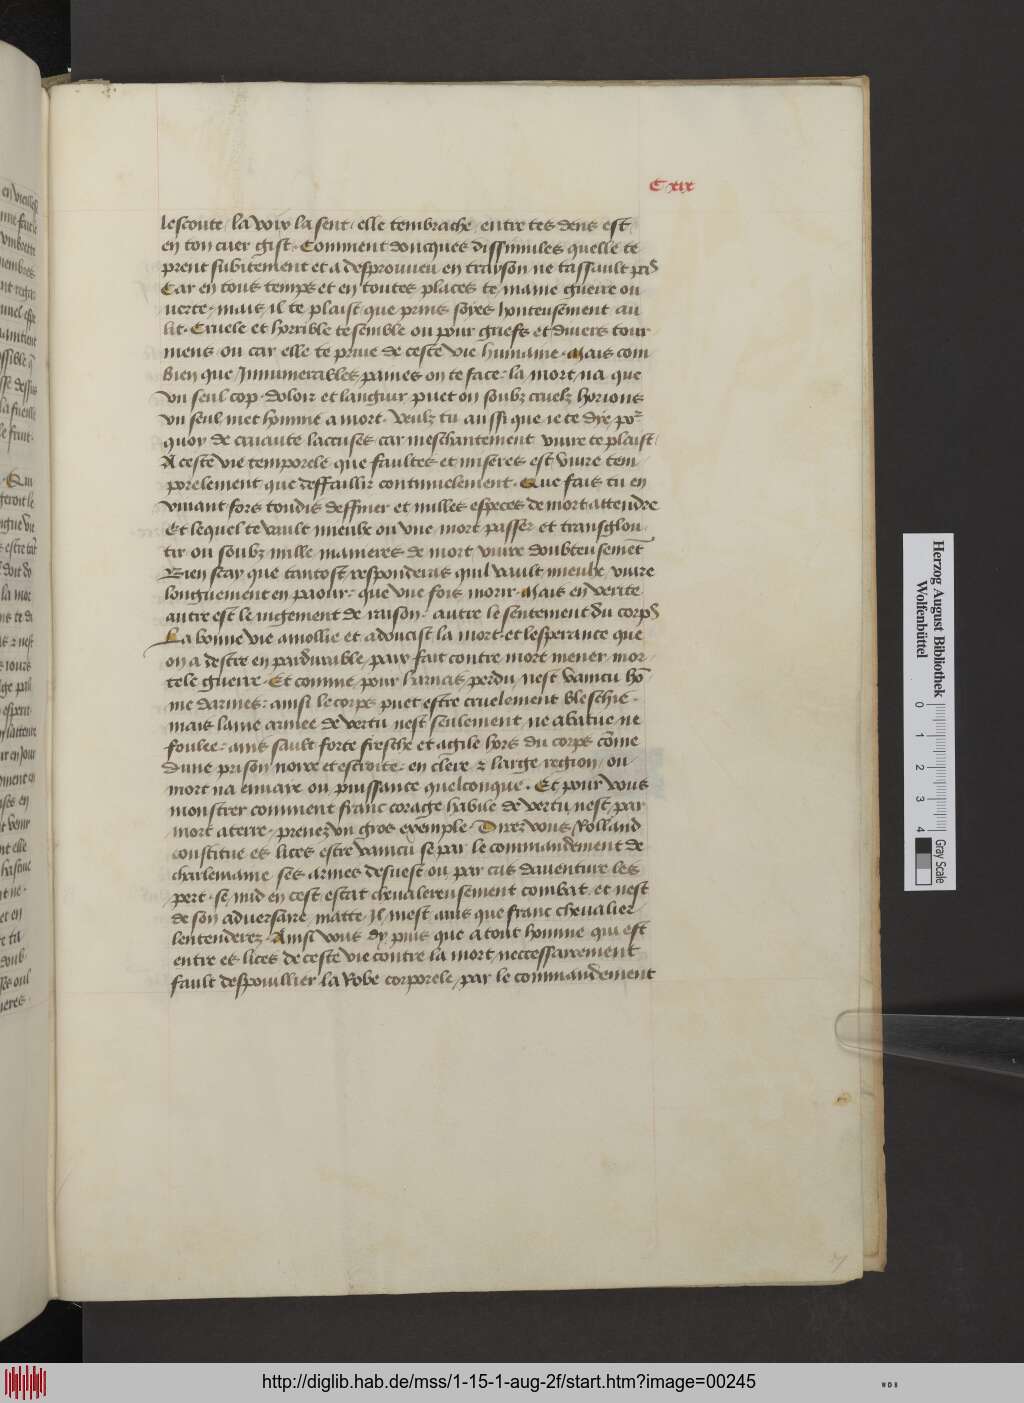 C xix
lescoute / la voix la sent / elle tembrache / entre tes dens est /
en ton cuer gist · Comment doncques dissimules quelle te
prent subitement et a desprouueu en trayson ne tassault pas
Car en tous temps et en toutes places te maine guerre ou
uerte / mais il te plaist que prins soyes honteusement au
lit · Cruele et horrible te semble ou pour griefs et diuers tour
mens / ou car elle te priue de ceste vie humaine · Mais com
bien que Innumerables paines on te face / la mort na que
vn seul cop · doloir et languir puet on soubz cruelz horions
vn seul met homme a mort · Veulz tu aussi que ie te dye po^r
quoy de cruaute laccuses / car meschantement viure te plaist /
A ceste vie temporele que faultes et miseres est viure tem
porelement que deffaillir continuelement · Que fais tu en
viuant fors tondis deffiner et milles especes de mort attendre
Et lequel te vault mieulx ou vne mort passer et transglou
tir ou soubz mille manieres de mort viure doubteusemēt
Bien scay que tantost responderas quil vault mieulx viure
longuement en paour / que vne fois morir · Mais en verite
autre est le iugement de raison / autre le sentement du corps
La bonne vie amollie et adoucist la mort et lesperance que
on a destre en pardurable paix fait contre mort mener mor
tele guerre · Et comme pour harnas perdu nest vaincu hō
me darmes / ainsi le corps puet estre cruelement bleschie ·
mais lame armee de vertu nest seulement ne abatue ne
foulee / ains sault forte fresche et agile hors du corps cōme
dune prison noire et estroite / en clere & large region / ou
mort na entrare ou puissance quelconque · Et pour vous
monstrer comment franc corage habile de vertu nest par
mort aterre / prenez vn gros exemple · Direz vous Rolland
constitue es lices estre vaincu se par le commandement de
charlemaine ses armes desuest ou par cas dauenture les
pert / se nud en cest estat chevalereusement combat et nest
de son aduersaire matte · Il nest ains que franc chevalier /
lentenderez · Ainsi vous dy puis que a tout homme qui est
entre es lices de ceste vie contre la mort neccessairement
fault despouillier la Robe corporele / par le commandement
Herzog August Bibliothek
Wolfenbüttel
0 1 2 3 4
Gray Scale
http://diglib.hab.de/mss/1-15-1-aug-2f/start.htm?image=00245
WDB